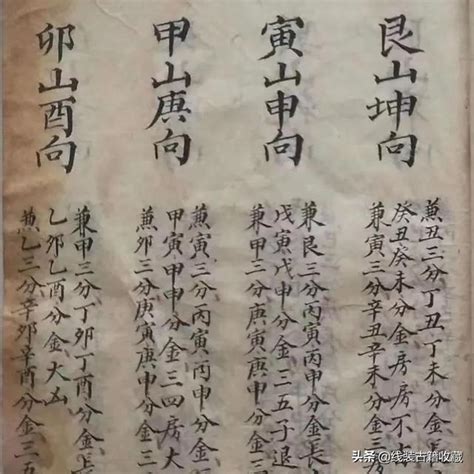 艮山坤向
兼丑三分丁丑丁未分金
癸丑癸未分金房房不
兼寅三分辛丑辛未分金
寅山申向
兼艮三分丙寅丙申分金長
戊寅戊申分金三五子退
兼甲三分庚寅庚申分金
甲山庚向
兼寅三分丙寅丙申分金
甲寅甲申分金三四房大
兼卯三分庚寅庚申分金
卯山酉向
兼甲三分丁卯丁酉分金長
乙卯乙酉分金大凶
兼乙三分辛卯辛酉分金三
头条 @线装古籍收藏